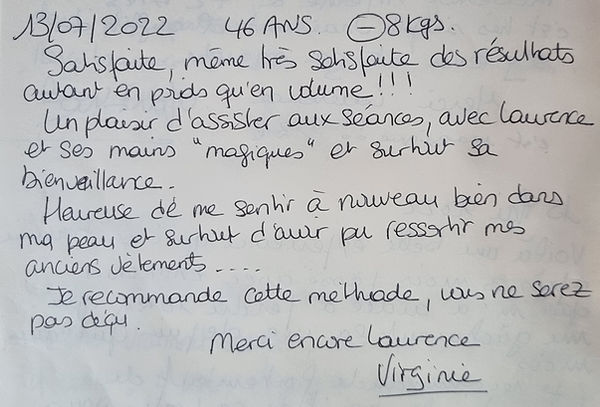 13/07/2022 46 ANS. ⊖8kgs.
Satisfaite, même très satisfaite des résultats
autant en poids qu'en volume!!!
Un plaisir d'assister aux séances, avec Laurence
et ses mains "magiques" et surtout sa
bienveillance.
Heureuse de me sentir à nouveau bien dans
ma peau et surtout d'avoir pu ressortir mes
anciens vêtements....
Je recommande cette méthode, vous ne serez
pas déçu.
Merci encore Laurence
Virginie